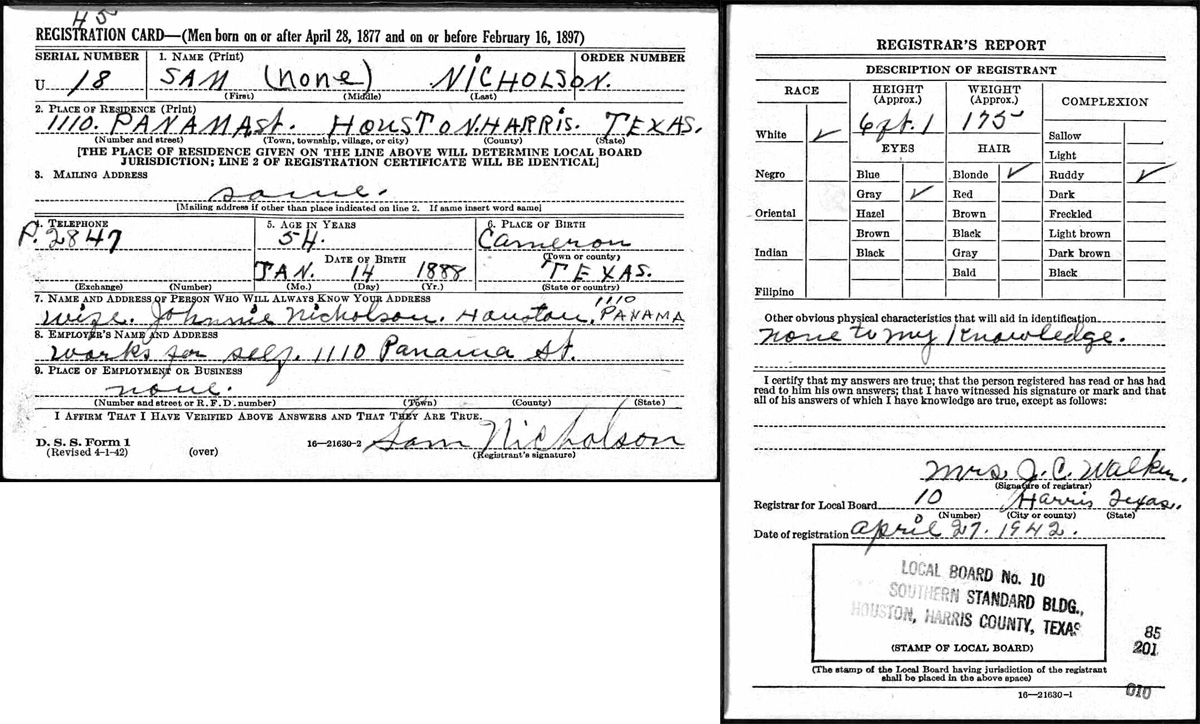 45
REGISTRATION CARD—(Men born on or after April 28, 1877 and on or before February 16, 1897)
SERIAL NUMBER 1. NAME (Print) ORDER NUMBER
U 18 SAM (none) NICHOLSON.
(First) (Middle) (Last)
2. PLACE OF RESIDENCE (Print)
1110. PANAMA St. HOUSTON. HARRIS. TEXAS.
(Number and street) (Town, township, village, or city) (County) (State)
[THE PLACE OF RESIDENCE GIVEN ON THE LINE ABOVE WILL DETERMINE LOCAL BOARD
JURISDICTION; LINE 2 OF REGISTRATION CERTIFICATE WILL BE IDENTICAL]
3. MAILING ADDRESS
same.
[Mailing address if other than place indicated on line 2. If same insert word same]
4. TELEPHONE 5. AGE IN YEARS 6. PLACE OF BIRTH
P. 2847 54. Cameron
DATE OF BIRTH (Town or county)
JAN. 14 1888 TEXAS.
(Exchange) (Number) (Mo.) (Day) (Yr.) (State or country)
7. NAME AND ADDRESS OF PERSON WHO WILL ALWAYS KNOW YOUR ADDRESS 1110
wife. Johnnie Nicholson. Houston, PANAMA
8. EMPLOYER'S NAME AND ADDRESS
works for self. 1110 Panama St.
9. PLACE OF EMPLOYMENT OR BUSINESS
none.
(Number and street or R. F. D. number) (Town) (County) (State)
I AFFIRM THAT I HAVE VERIFIED ABOVE ANSWERS AND THAT THEY ARE TRUE.
D. S. S. Form 1
(Revised 4-1-42) (over) 16—21630-2 Sam Nicholson
(Registrant's signature)
REGISTRAR'S REPORT
DESCRIPTION OF REGISTRANT
RACE HEIGHT (Approx.) WEIGHT (Approx.) COMPLEXION
White ✓ 6 ft. 1 175 Sallow
EYES HAIR Light
Negro Blue Blonde ✓ Ruddy ✓
Gray ✓ Red Dark
Oriental Hazel Brown Freckled
Brown Black Light brown
Indian Black Gray Dark brown
Bald Black
Filipino
Other obvious physical characteristics that will aid in identification
none to my Knowledge.
I certify that my answers are true; that the person registered has read or has had
read to him his own answers; that I have witnessed his signature or mark and that
all of his answers of which I have knowledge are true, except as follows:
Mrs. J. C. Walker.
(Signature of registrar)
Registrar for Local Board 10 Harris Texas.
(Number) (City or county) (State)
Date of registration April 27. 1942.
LOCAL BOARD No. 10
SOUTHERN STANDARD BLDG.,
HOUSTON, HARRIS COUNTY, TEXAS
85
201
(STAMP OF LOCAL BOARD)
(The stamp of the Local Board having jurisdiction of the registrant
shall be placed in the above space)
16—21630-1 010